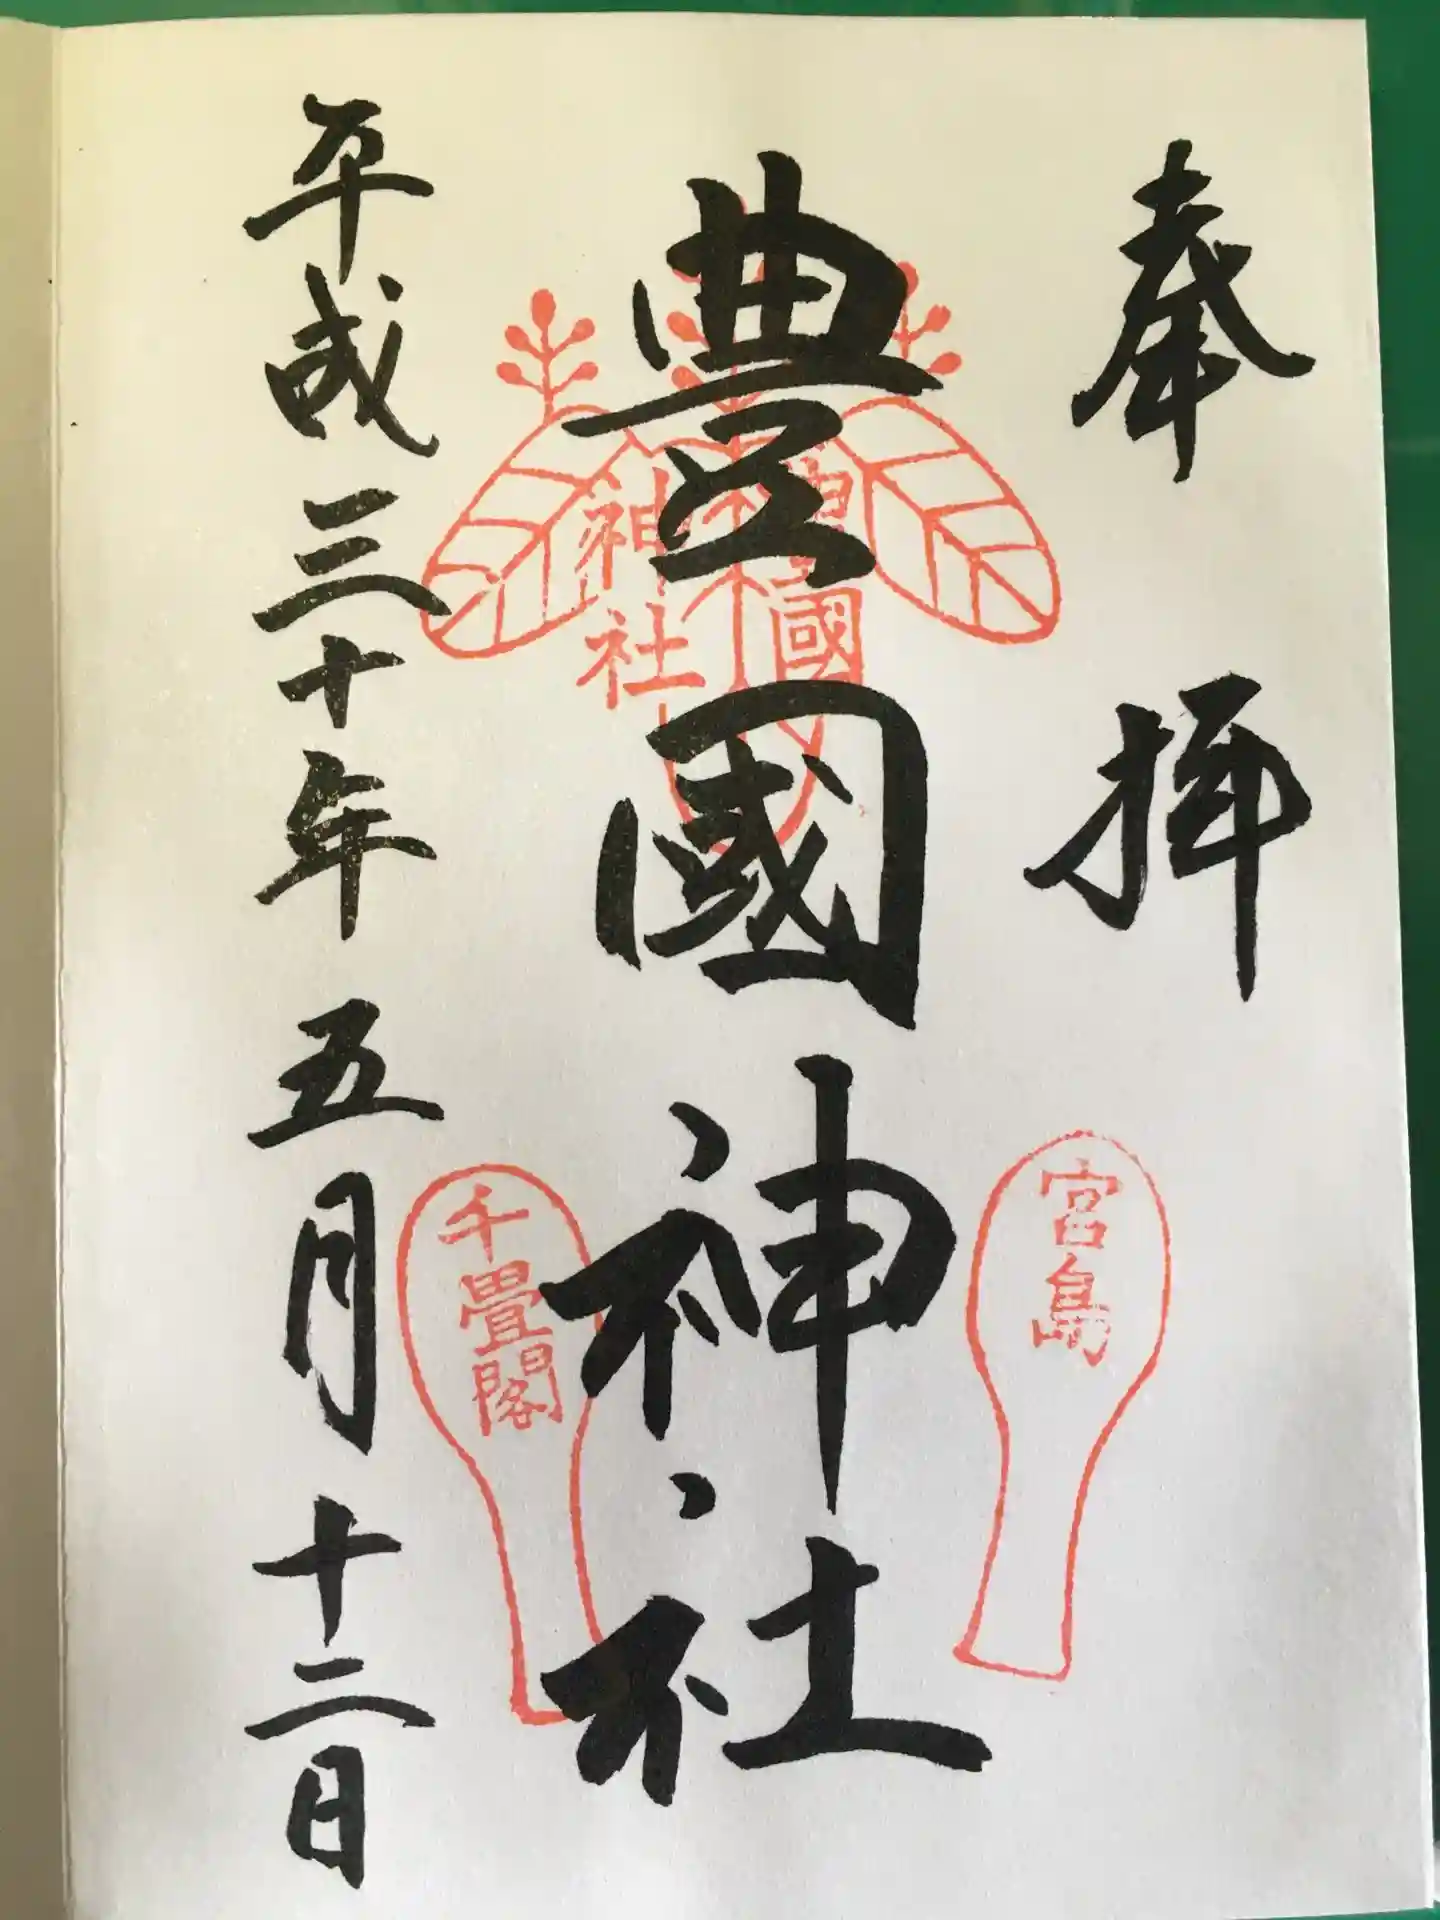 奉拝
宮島
豊國神社
豊國
神社
千畳閣
平成三十年五月十二日